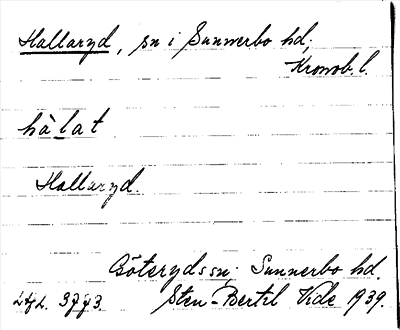 Hallaryd, sn i Sunnerbo hd,
Kronob. l.
hàlat
Hallaryd.
Göteryds sn, Sunnerbo hd.
Sten-Bertil Vide 1939.